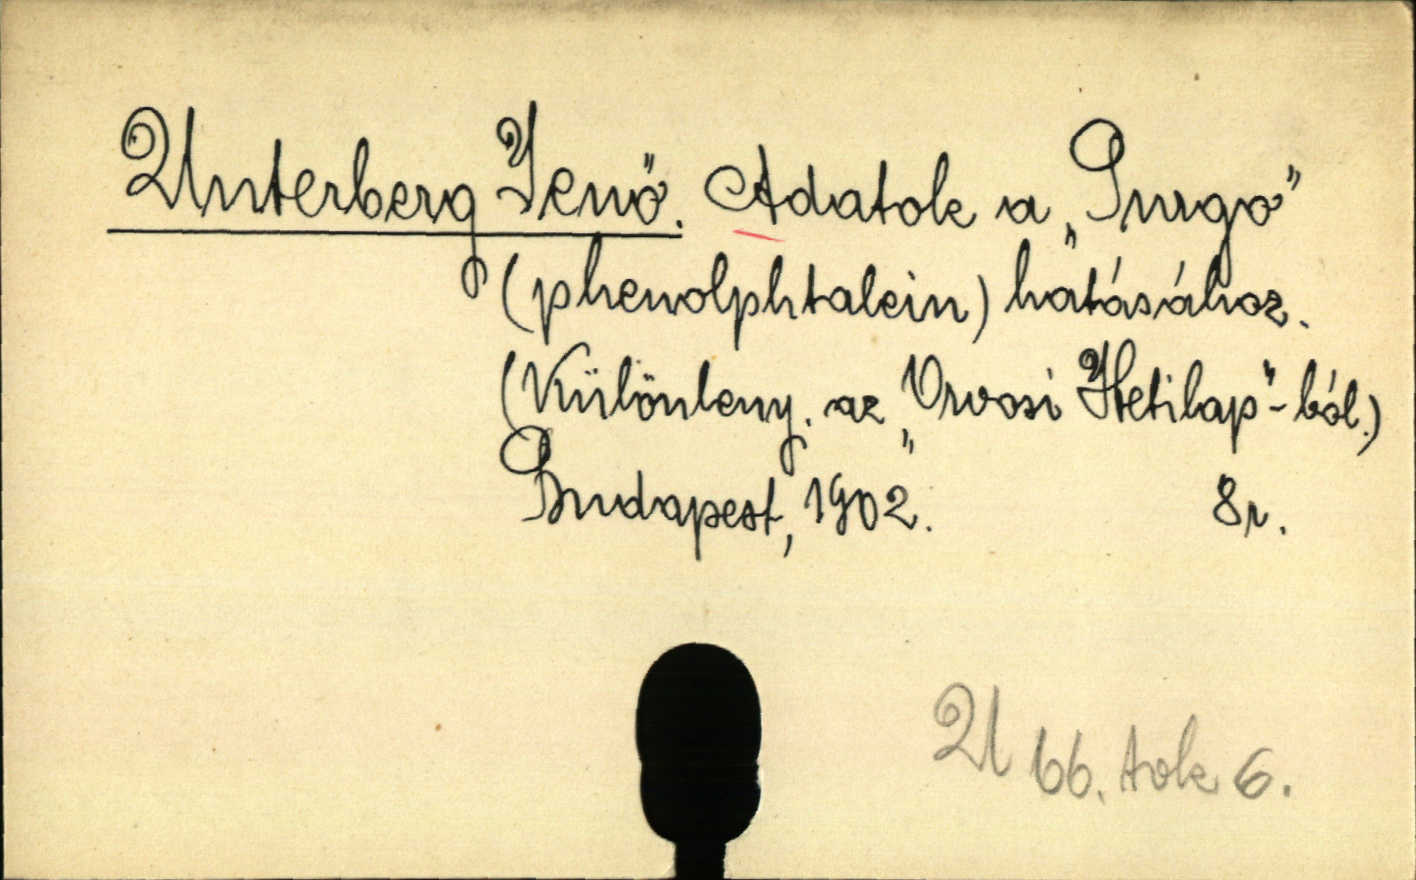 Unterberg Jenő. Adatok a „Purgo”
(phenolphtalein) hatásához.
(Különleny. az „Orvosi Hetilap”-ból.)
Budapest, 1902. 8r.
U 66. tok 6.